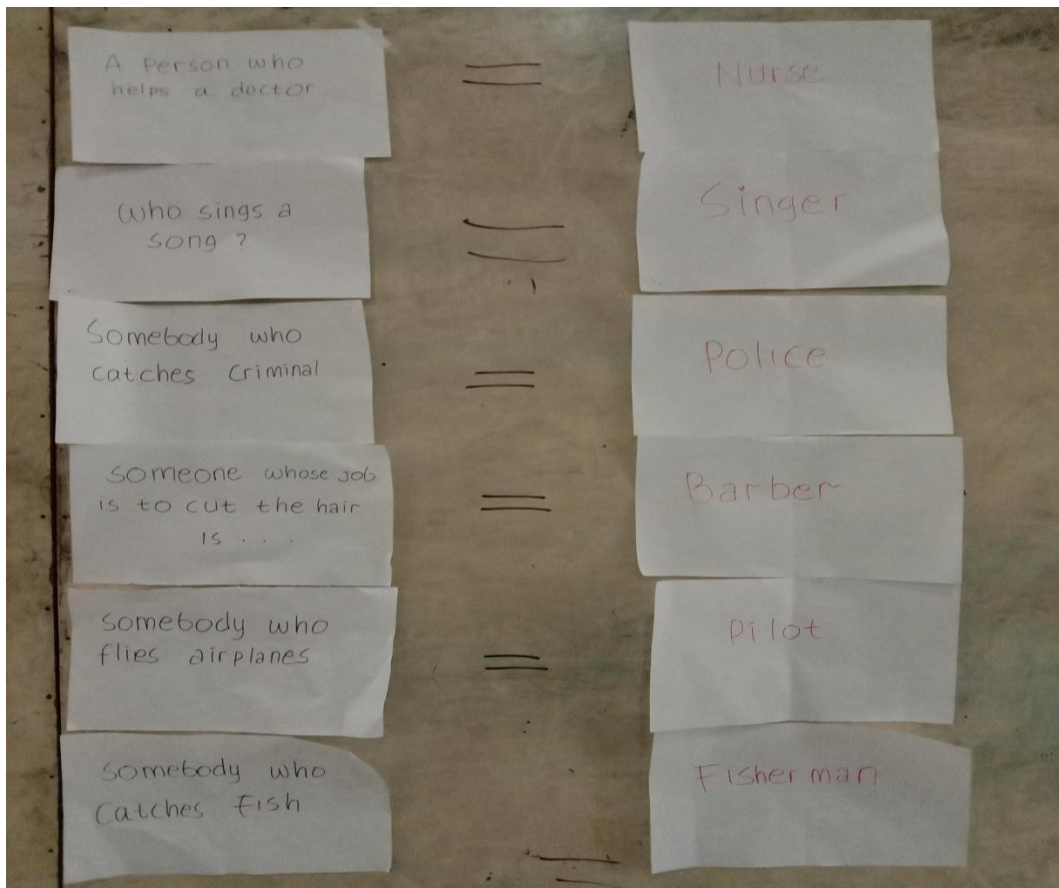 A Person who
helps a doctor
=
Nurse
Who sings a
song ?
=
Singer
Somebody who
catches Criminal
=
Police
Someone whose job
is to cut the hair
is . . .
=
Barber
Somebody who
flies airplanes
=
Pilot
Somebody who
Catches Fish
=
Fisherman